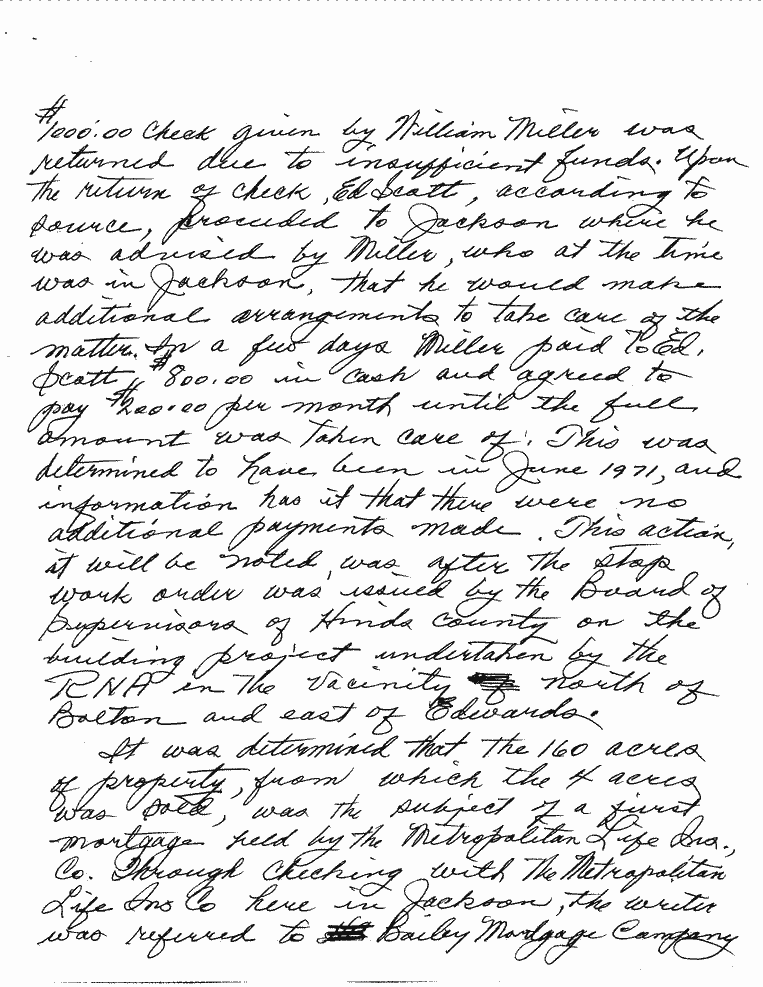 $1000.00 Check given by William Miller was
returned due to insufficient funds. Upon
the return of check, Ed Scott, according to
source, proceded to Jackson where he
was advised by Miller, who at the time
was in Jackson, that he would make
additional arrangements to take care of the
matter. In a few days Miller paid to Ed.
Scott, $800.00 in cash and agreed to
pay $200.00 per month until the full
amount was taken care of. This was
determined to have been in June 1971, and
information has it that there were no
additional payments made. This action,
it will be noted, was after the stop
work order was issued by the Board of
Supervisors of Hinds County on the
building project undertaken by the
RNA in the vacinity north of
Bolton and east of Edwards.
It was determined that the 160 acres
of property, from which the 4 acres
was sold, was the subject of a first
mortgage held by the Metropolitan Life Ins.,
Co. Through checking with the Metropolitan
Life Ins Co here in Jackson, the writer
was referred to Bailey Mortgage Company